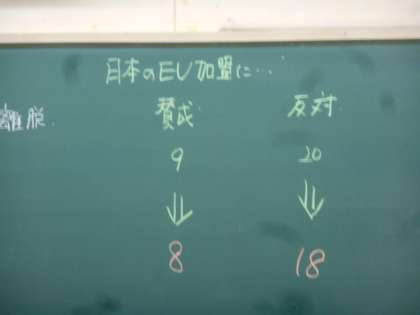 日本のEU加盟に…
賛成 反対
離脱
9 20
⇓ ⇓
8 18